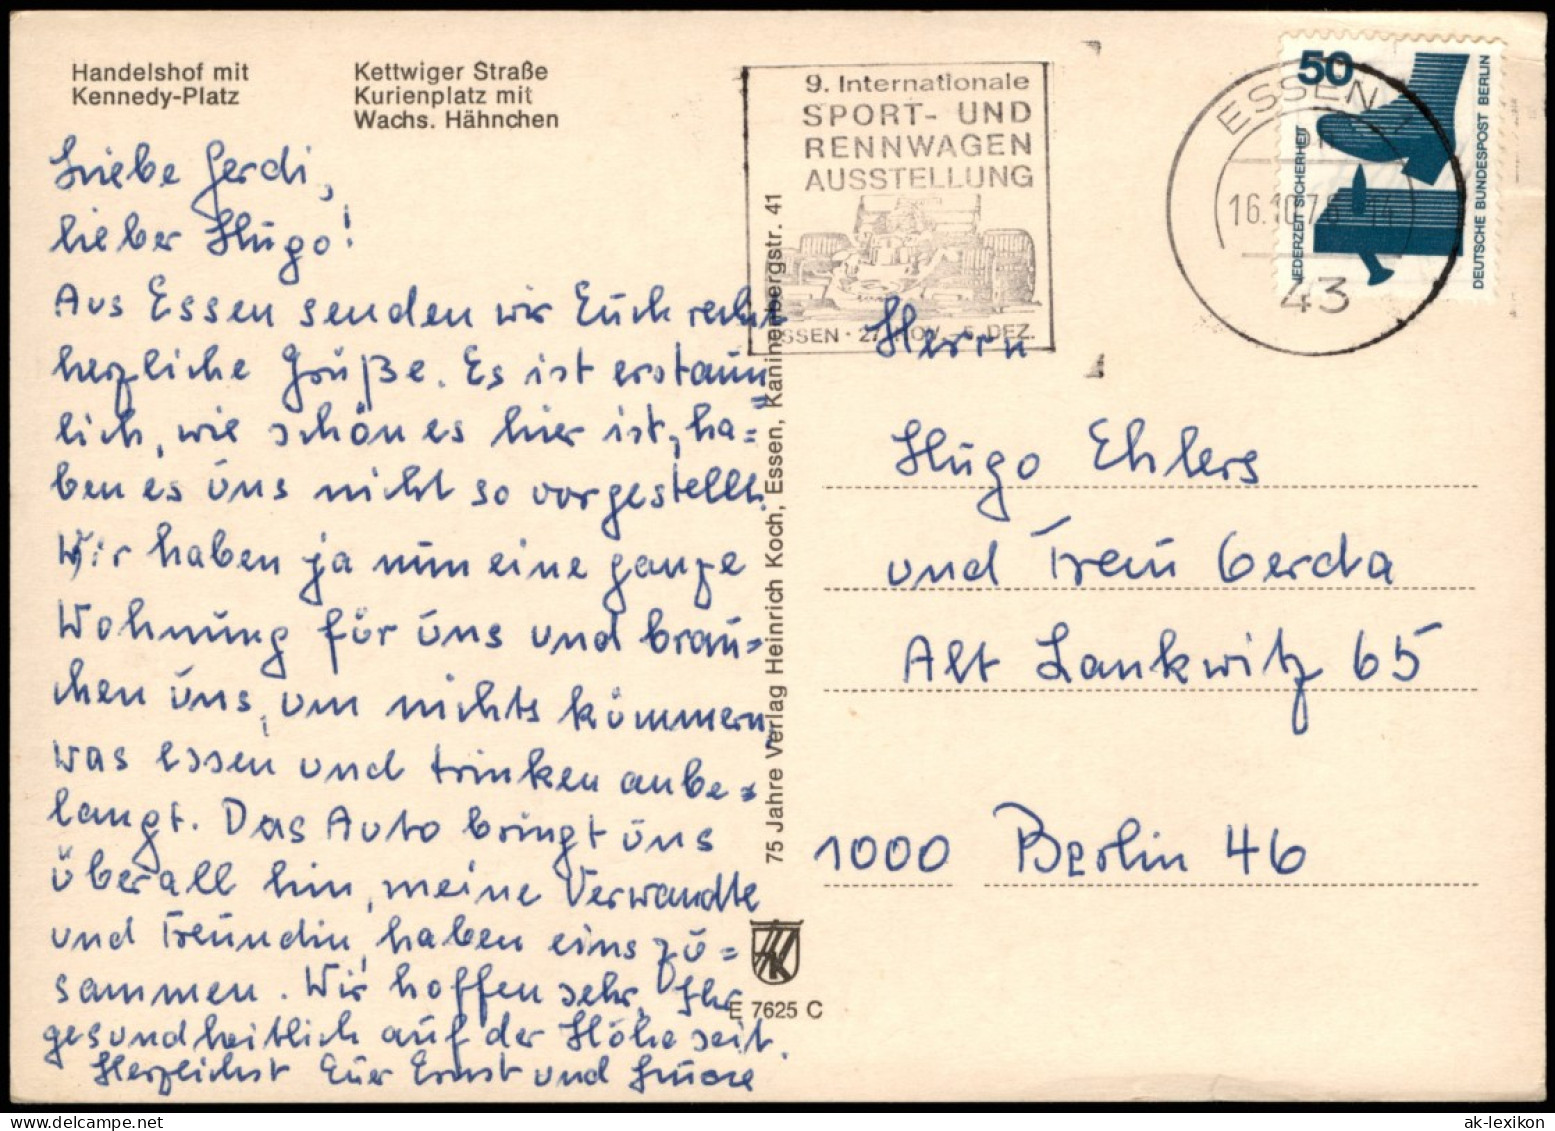 Handelshof mit
Kennedy-Platz
Kettwiger Straße
Kurienplatz mit
Wachs. Hähnchen
Liebe Gerdi,
lieber Hugo!
Aus Essen senden wir Euch recht
herzliche Grüße. Es ist erstaun=
lich, wie schön es hier ist, ha=
ben es uns nicht so vorgestellt.
Wir haben ja nun eine ganze
Wohnung für uns und brau=
chen uns, um nichts kümmern,
was Essen und trinken anbe=
langt. Das Auto bringt uns
überall hin, meine Verwandte
und Freundin, haben eins zu=
sammen. Wir hoffen sehr, Ihr
gesundheitlich auf der Höhe seit.
Herzlichst Euer Ernst und
75 Jahre Verlag Heinrich Koch, Essen, Kaninenbergstr. 41
E 7625 C
9. Internationale
SPORT- UND
RENNWAGEN
AUSSTELLUNG
ESSEN · 27. NOV. - 5. DEZ.
ESSEN 1
16.10.76 14
43
50
JEDERZEIT SICHERHEIT
DEUTSCHE BUNDESPOST BERLIN
Herrn
Hugo Ehlers
und Frau Gerda
Alt Lankwitz 65
1000 Berlin 46
ak-lexikon